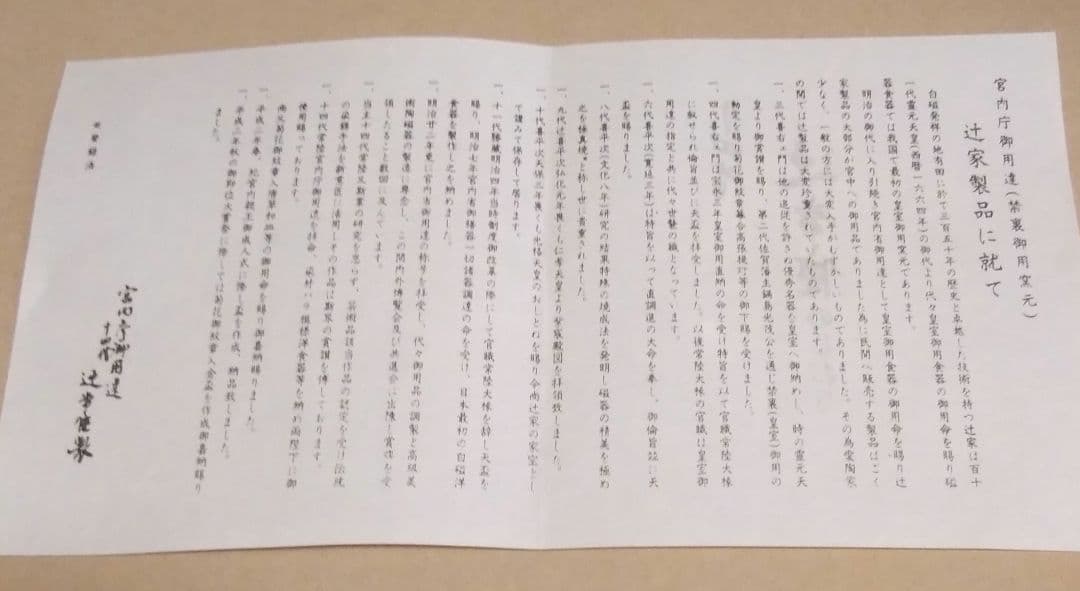 宮内庁御用達(禁裏御用窯元)
辻家製品に就て
白磁発祥の地有田に於て三百五十年の歴史と卓越した技術を持つ辻家は百十
一代霊元天皇(西暦一六六四年)の御代より代々皇室御用食器の御用命を賜り磁
器食器では我国で最初の皇室御用窯元であります。
明治の御代に入り引続き宮内省御用達として皇室御用食器の御用命を賜り辻
家製品の大部分が宮中への御用品でありました為に民間へ販売する製品はごく
少なく、一般の方には大変入手がむずかしいものでありました。その為愛陶家
の間では辻製品は大変珍重されていたものであります。
一、三代喜右ェ門は他の追従を許さぬ優秀名器を皇室へ御納めし、時の霊元天
皇より御賞讃を賜り、第二代佐賀藩主鍋島光茂公を通じ禁裏(皇室)御用の
勅定を賜り菊花御紋章幕合高張提灯等の御下賜を受けました。
一、四代喜右ェ門は宝永三年皇室御用直納の命を受け特旨を以て官職常陸大掾
に叙せられ倫旨並びに天盃を拝受しました。以後常陸大掾の官職は皇室御
用達の指定と共に代々世襲の職となっています。
一、六代喜平次(寛延三年)は特旨を以って直調進の大命を奉し、御倫旨並に天
盃を賜りました。
一、八代喜平次(文化八年)研究の結果特殊の焼成法を発明し磁器の精美を極め
之を極真焼と称し世に貴重されました。
一、九代辻喜平次弘化元年畏くも仁孝天皇より紫宸殿図を拝領致しました。
一、十代喜平次天保三年畏くも光格天皇のおしとねを賜り今尚辻家の家宝とし
て謹みて保存して居ります。
一、十一代勝蔵明治四年当時制度御改革の際にして官職常陸大掾を辞し天盃を
賜り、明治七年宮内省御膳器一切諸器調達の命を受け、日本最初の白磁洋
食器を製作し之を納めました。
明治廿二年更に宮内省御用達の称号を拝受し、代々御用品の調製と高級美
術陶磁器の製造に専念し、この間内外博覧会及び共進会に出陳し賞牌を受
領したること数回に及んでいます。
一、当主十四代常陸父祖業の研究を怠らず、芸術品該当作品の認定を受け伝統
の染錆手法を新意匠に活用しその作品は斯界の賞讃を博しております。
一、十四代常陸宮内庁御用達を拝命、染付バラ模様洋食器等を納め両陛下に御
使用賜っております。
尚又菊花御紋章入唐草和皿等の御用命を賜り御嘉納賜りました。
一、平成二年春、紀宮内親王御成人式に際し盃を作成、納品致しました。
一、平成二年秋の御即位大嘗祭に際しては菊花御紋章入金盃を作成御嘉納賜り
ました。
宮内庁御用達
辻常陸製